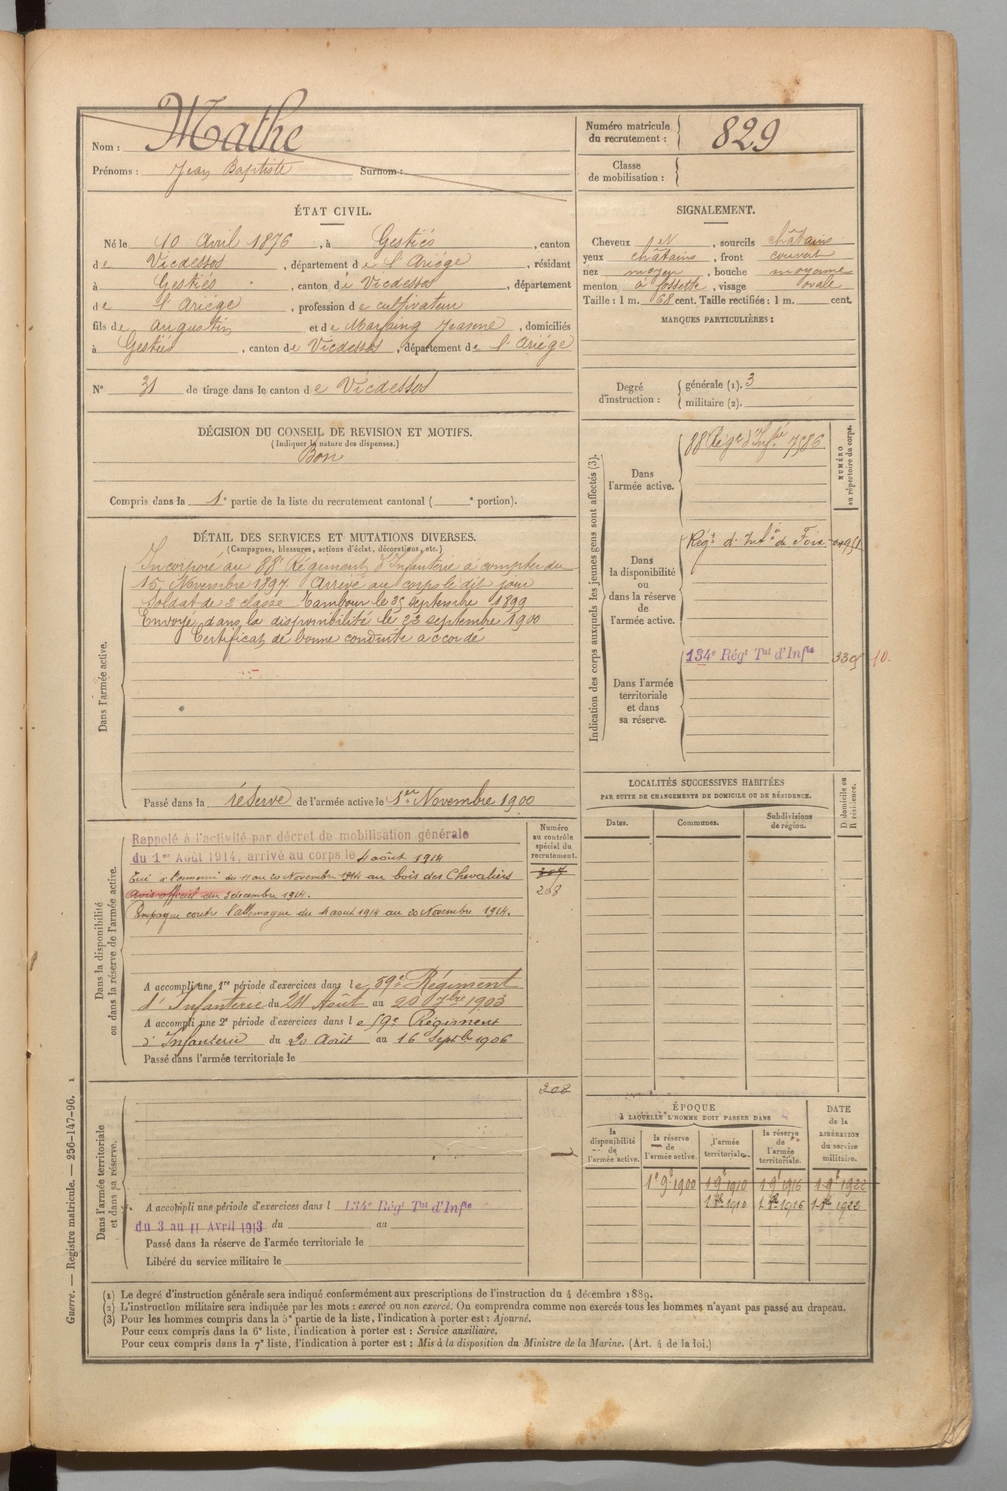 Nom : Mathe
Prénoms : Jean Baptiste Surnom :
Numéro matricule du recrutement : 829
Classe de mobilisation :
ÉTAT CIVIL.
Né le 10 Avril 1876, à Gestiés, canton
de Vicdessos, département de l'Ariége, résidant
à Gestiés, canton de Vicdessos, département
de l'Ariége, profession de cultivateur
fils de Augustin et de Marfaing Jeanne, domiciliés
à Gestiés, canton de Vicdessos, département de l'Ariége
N° 31 de tirage dans le canton de Vicdessos
SIGNALEMENT.
Cheveux , sourcils châtains
yeux châtains, front couvert
nez moyen, bouche moyenne
menton à fossette, visage ovale
Taille : 1 m. 68 cent. Taille rectifiée : 1 m. cent.
MARQUES PARTICULIÈRES :
Degré d'instruction : générale (1). 3
militaire (2).
DÉCISION DU CONSEIL DE REVISION ET MOTIFS.
(Indiquer la nature des dispenses.)
Bon
Compris dans la 1e partie de la liste du recrutement cantonal ( e portion).
DÉTAIL DES SERVICES ET MUTATIONS DIVERSES.
(Campagnes, blessures, actions d'éclat, décorations, etc.)
Dans l'armée active.
Incorporé au 88e Régiment d'Infanterie à compter du
15 Novembre 1897. Arrivé au corps le dit jour
Soldat de 2e classe Tambour le 25 septembre 1899
Envoyé dans la disponibilité le 23 septembre 1900
Certificat de bonne conduite accordé
Passé dans la réserve de l'armée active le 1er Novembre 1900
Indication des corps auxquels les jeunes gens sont affectés (3).
NUMÉRO au répertoire du corps.
Dans l'armée active.
88 Régt d'Infie 7586
Dans la disponibilité ou dans la réserve de l'armée active.
Régt d'Infie de Foix
Dans l'armée territoriale et dans sa réserve.
134e Régt Tal d'Infie
LOCALITÉS SUCCESSIVES HABITÉES
PAR SUITE DE CHANGEMENTS DE DOMICILE OU DE RÉSIDENCE.
Dates. Communes. Subdivisions de région. D domicile ou R résidence.
Dans la disponibilité ou dans la réserve de l'armée active.
Numéro au contrôle spécial du recrutement.
Rappelé à l'activité par décret de mobilisation générale
du 1er Août 1914, arrivé au corps le 4 août 1914
Tué à l'ennemi du 11 au 20 Novembre 1914 au bois des Chevaliers
Avis officiel du 3 décembre 1914.
Campagne contre l'allemagne du 4 août 1914 au 20 Novembre 1914.
268
A accompli une 1re période d'exercices dans le 59e Régiment
d'Infanterie du 24 Août au 20 7bre 1903
A accompli une 2e période d'exercices dans le 59e Régiment
d'Infanterie du 20 Août au 16 Septbre 1906
Passé dans l'armée territoriale le
Dans l'armée territoriale et dans sa réserve.
208
A accompli une période d'exercices dans l 134e Régt Tal d'Infie
du 3 au 11 Avril 1913 du au
Passé dans la réserve de l'armée territoriale le
Libéré du service militaire le
ÉPOQUE
À LAQUELLE L'HOMME DOIT PASSER DANS
DATE de la LIBÉRATION du service militaire.
la disponibilité de l'armée active.
la réserve de l'armée active.
l'armée territoriale.
la réserve de l'armée territoriale.
1e 9 1900 1 9 1910 1 9 1916 1 9 1922
1910 1916 1922
(1) Le degré d'instruction générale sera indiqué conformément aux prescriptions de l'instruction du 4 décembre 1889.
(2) L'instruction militaire sera indiquée par les mots : exercé ou non exercé. On comprendra comme non exercés tous les hommes n'ayant pas passé au drapeau.
(3) Pour les hommes compris dans la 5e partie de la liste, l'indication à porter est : Ajourné.
Pour ceux compris dans la 6e liste, l'indication à porter est : Service auxiliaire.
Pour ceux compris dans la 7e liste, l'indication à porter est : Mis à la disposition du Ministre de la Marine. (Art. 4 de la loi.)
Guerre. — Registre matricule. — 256-147-96. 1